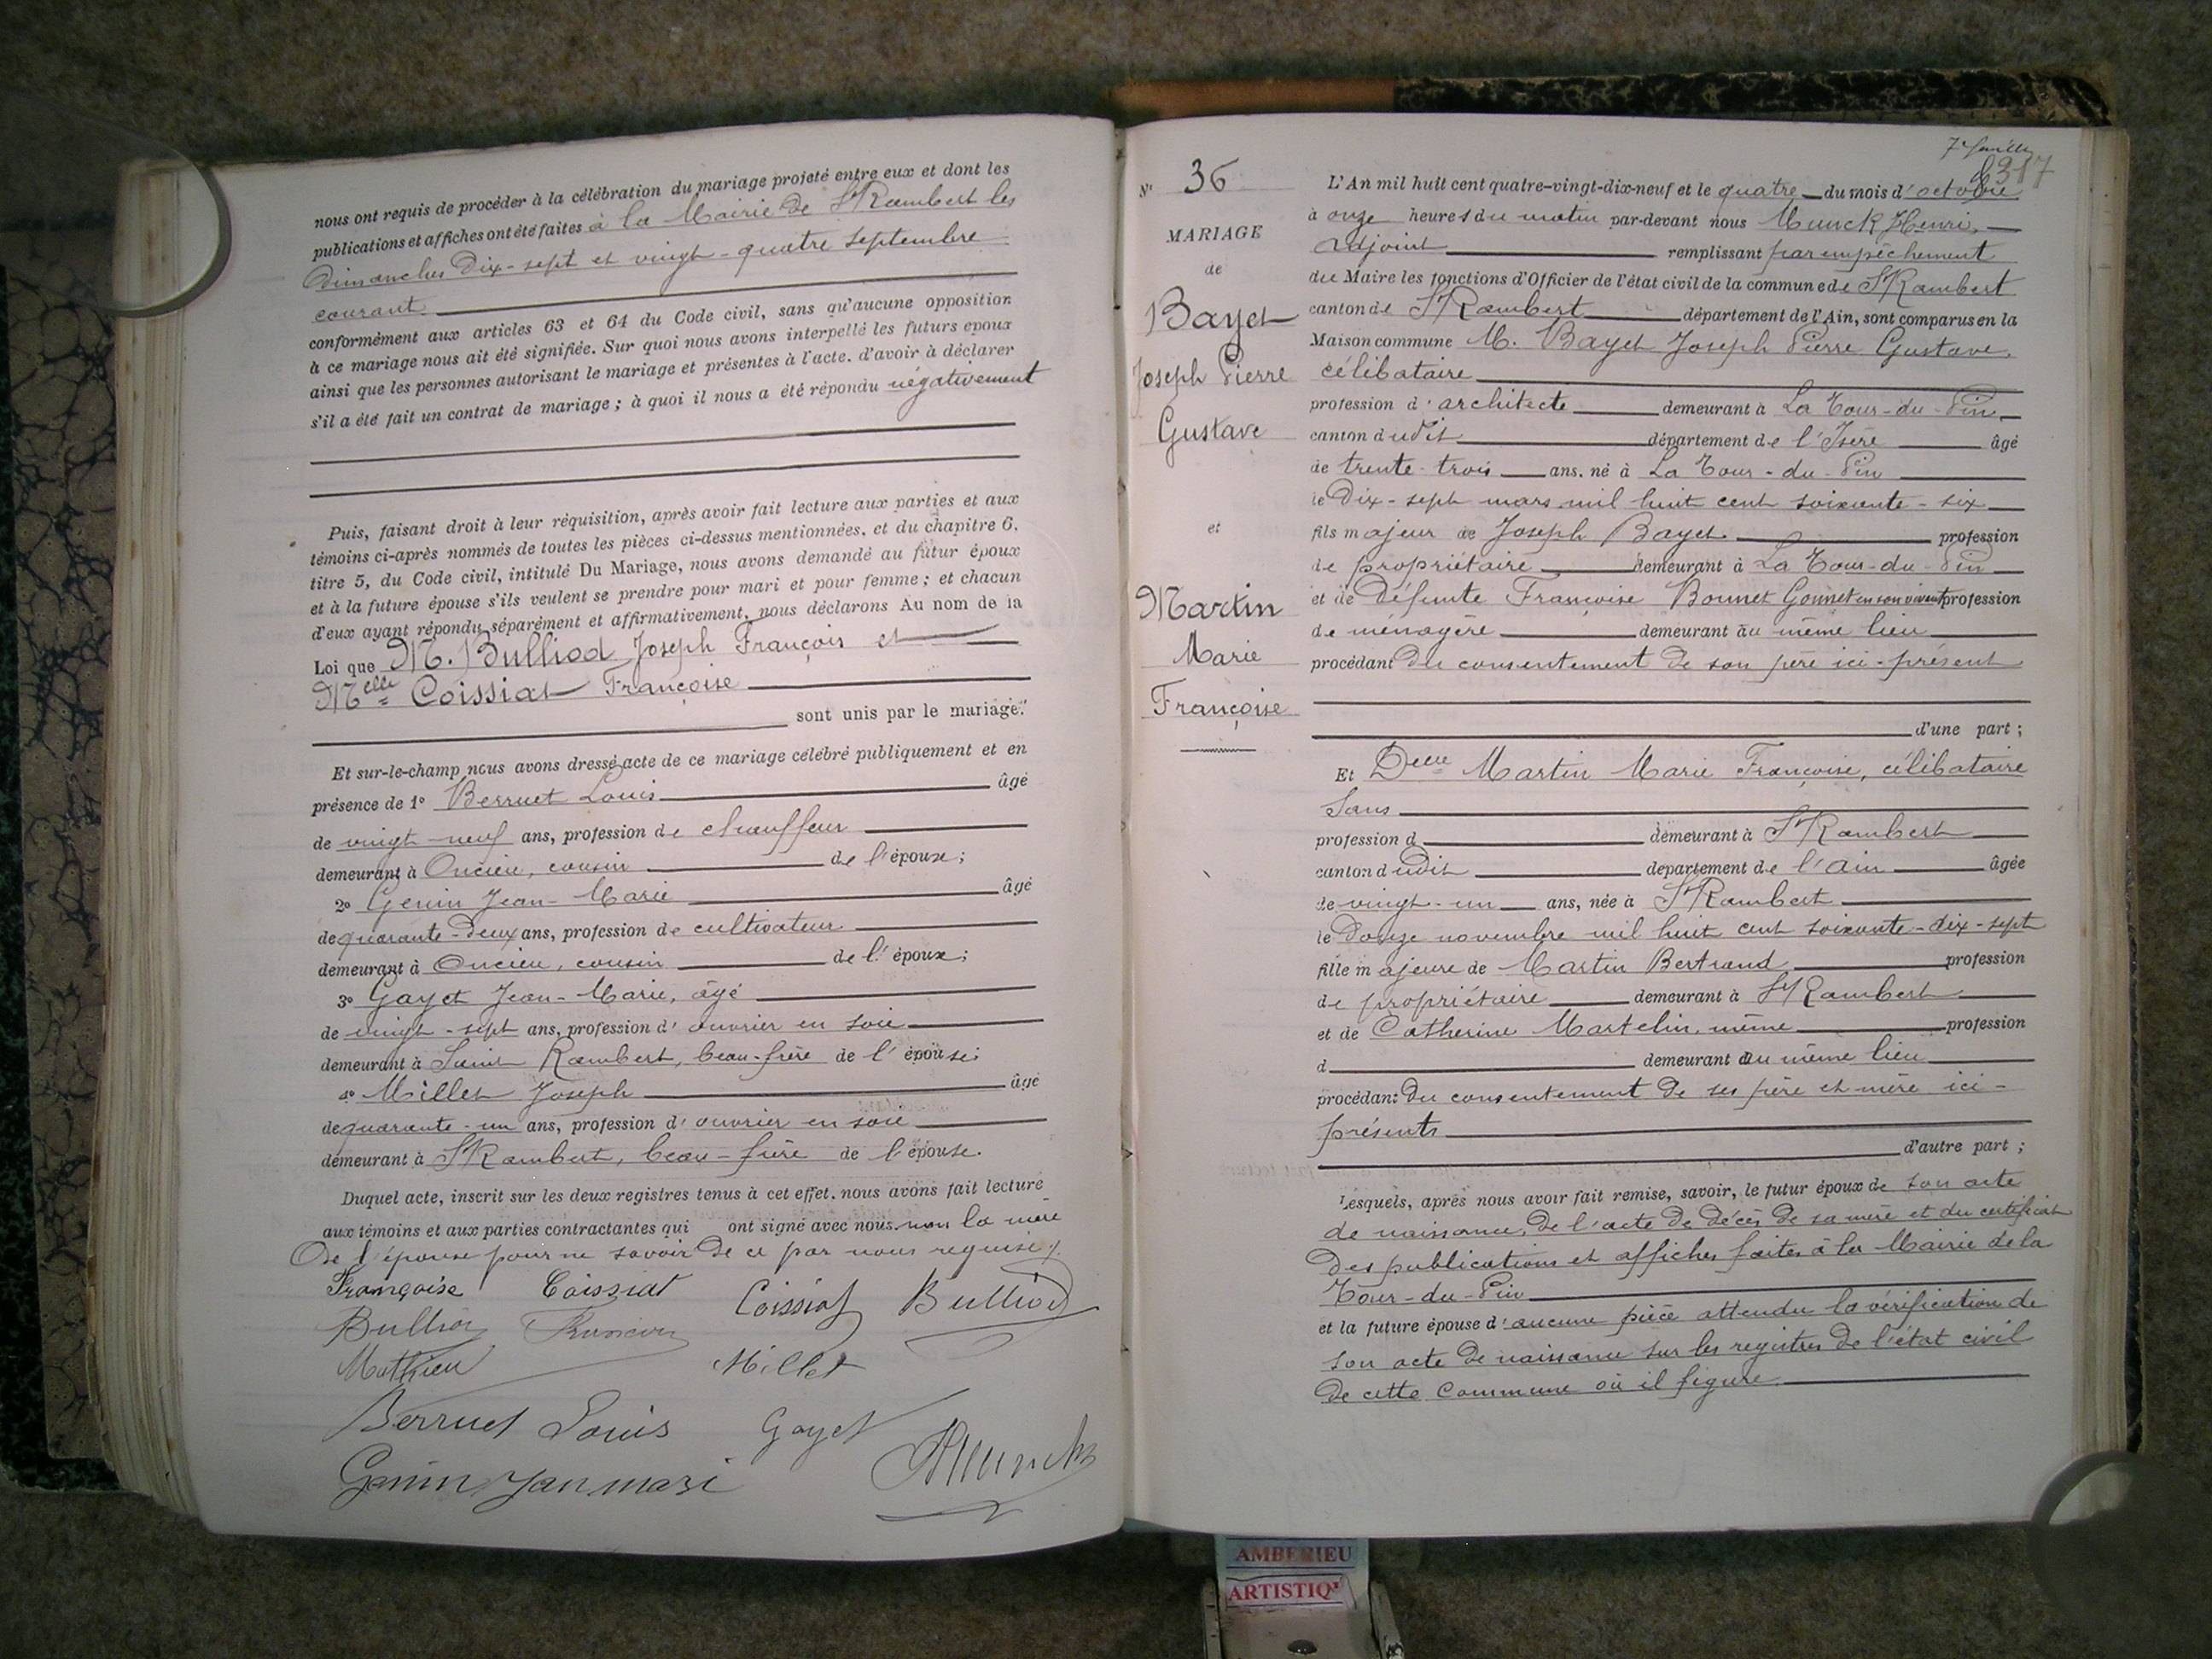 nous ont requis de procéder à la célébration du mariage projeté entre eux et dont les
publications et affiches ont été faites à la Mairie de St Rambert les
Dimanches Dix-sept et vingt-quatre septembre
courant
conformément aux articles 63 et 64 du Code civil, sans qu'aucune opposition
à ce mariage nous ait été signifiée. Sur quoi nous avons interpellé les futurs époux
ainsi que les personnes autorisant le mariage et présentes à l'acte. d'avoir à déclarer
s'il a été fait un contrat de mariage ; à quoi il nous a été répondu négativement
Puis, faisant droit à leur réquisition, après avoir fait lecture aux parties et aux
témoins ci-après nommés de toutes les pièces ci-dessus mentionnées, et du chapitre 6,
titre 5, du Code civil, intitulé Du Mariage, nous avons demandé au futur époux
et à la future épouse s'ils veulent se prendre pour mari et pour femme ; et chacun
d'eux ayant répondu séparément et affirmativement, nous déclarons Au nom de la
Loi que M. Bulliod Joseph François et
Melle Coissiat Françoise
sont unis par le mariage.
Et sur-le-champ nous avons dressé acte de ce mariage célébré publiquement et en
présence de 1° Berruet Louis âgé
de vingt-neuf ans, profession de chauffeur
demeurant à Oncieu, cousin de l'époux;
2° Genin Jean-Marie âgé
de quarante-deux ans, profession de cultivateur
demeurant à Oncieu, cousin de l'époux;
3° Gayet Jean-Marie, âgé
de vingt-sept ans, profession d'ouvrier en soie
demeurant à Saint Rambert, beau-frère de l'épouse;
4° Millet Joseph âgé
de quarante-un ans, profession d'ouvrier en soie
demeurant à St Rambert, beau-frère de l'épouse.
Duquel acte, inscrit sur les deux registres tenus à cet effet, nous avons fait lecture
aux témoins et aux parties contractantes qui ont signé avec nous non la mère
De l'épouse pour ne savoir de ce par nous requise
Françoise Coissiat Coissiat Bulliod
Bulliod
Mathieu Millet
Berruet Louis Gayet
Genin Jan mari Munck
7e feuillet
N° 36
MARIAGE
de
Bayet
Joseph Pierre
Gustave
et
Martin
Marie
Françoise
L'An mil huit cent quatre-vingt-dix-neuf et le quatre du mois d'octobre
à onze heures du matin par-devant nous Munck Henri,
adjoint remplissant par empêchement
du Maire les fonctions d'Officier de l'état civil de la commune de St Rambert
canton de St Rambert département de l'Ain, sont comparus en la
Maison commune M. Bayet Joseph Pierre Gustave,
célibataire
profession d'architecte demeurant à La Tour-du-Pin,
canton dudit département de l'Isère âgé
de trente-trois ans, né à La Tour-du-Pin
le Dix-sept mars mil huit cent soixante-six
fils majeur de Joseph Bayet profession
de propriétaire demeurant à La Tour-du-Pin
et de Défunte Françoise Bonnet Gonnet en son vivant profession
de ménagère demeurant au même lieu
procédant Du consentement de son père ici-présent
d'une part ;
Et Delle Martin Marie Françoise, célibataire
Sans
profession d demeurant à St Rambert
canton dudit département de l'Ain âgée
de vingt-un ans, née à St Rambert
le Douze novembre mil huit cent soixante-dix-sept
fille majeure de Martin Bertrand profession
de propriétaire demeurant à St Rambert
et de Catherine Martelin, même profession
d demeurant au même lieu
procédant Du consentement de ses père et mère ici-
présents
d'autre part ;
Lesquels, après nous avoir fait remise, savoir, le futur époux de son acte
de naissance, de l'acte de décès de sa mère et du certificat
Des publications et affiches faites à la Mairie de la
Tour-du-Pin
et la future épouse d'aucune pièce attendu la vérification de
son acte de naissance sur les registres de l'état civil
de cette Commune où il figure.
AMBERIEU
ARTISTIQ